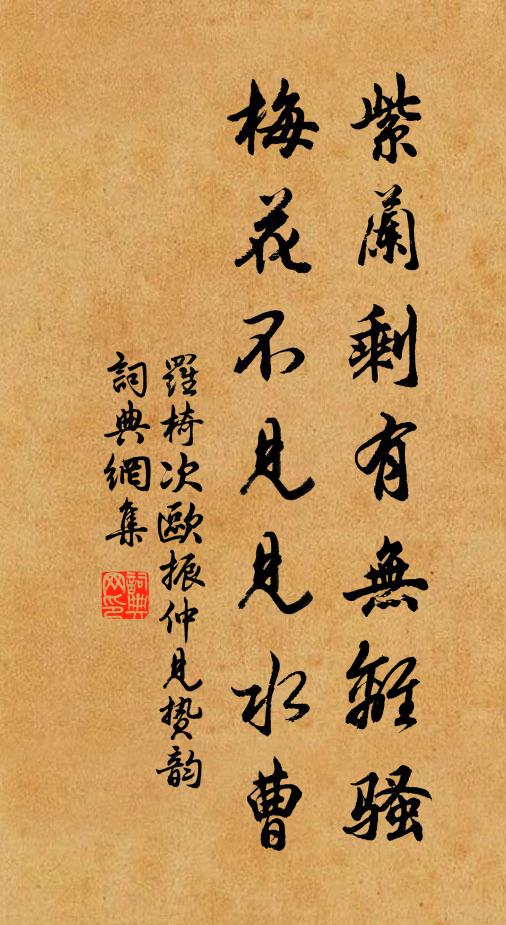 紫蘭剩有無離騷
梅花不見見水曹
羅椅次歐振仲見贄韵
詞典網集
詞典网印